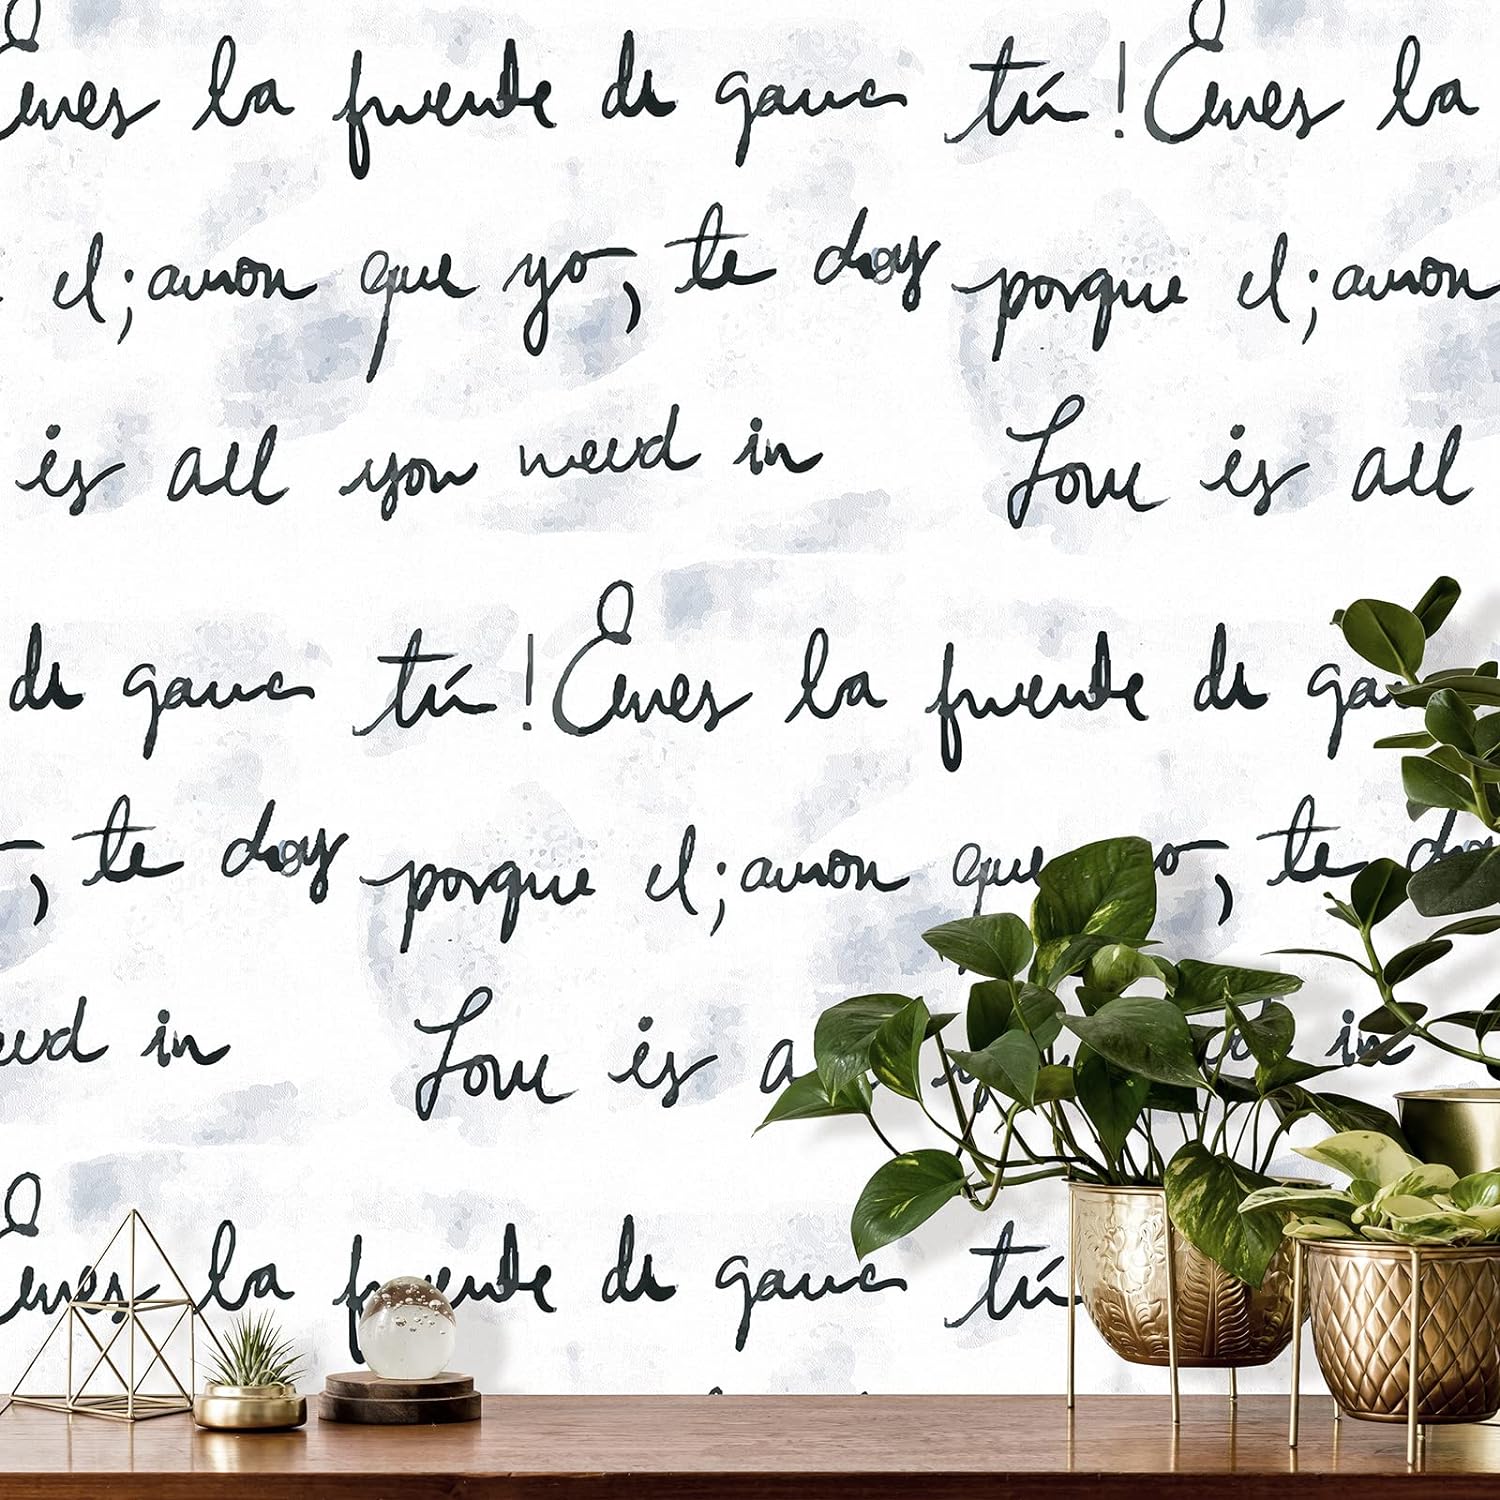 Eres la fuente de gauc tú! Eres la
el; amor que yo, te doy porque el; amor
is all you need in Love is all
de gauc tú! Eres la fuente de ga
, te doy porque el; amor que yo, te do
need in Love is a in
Eres la fuente de gauc tú